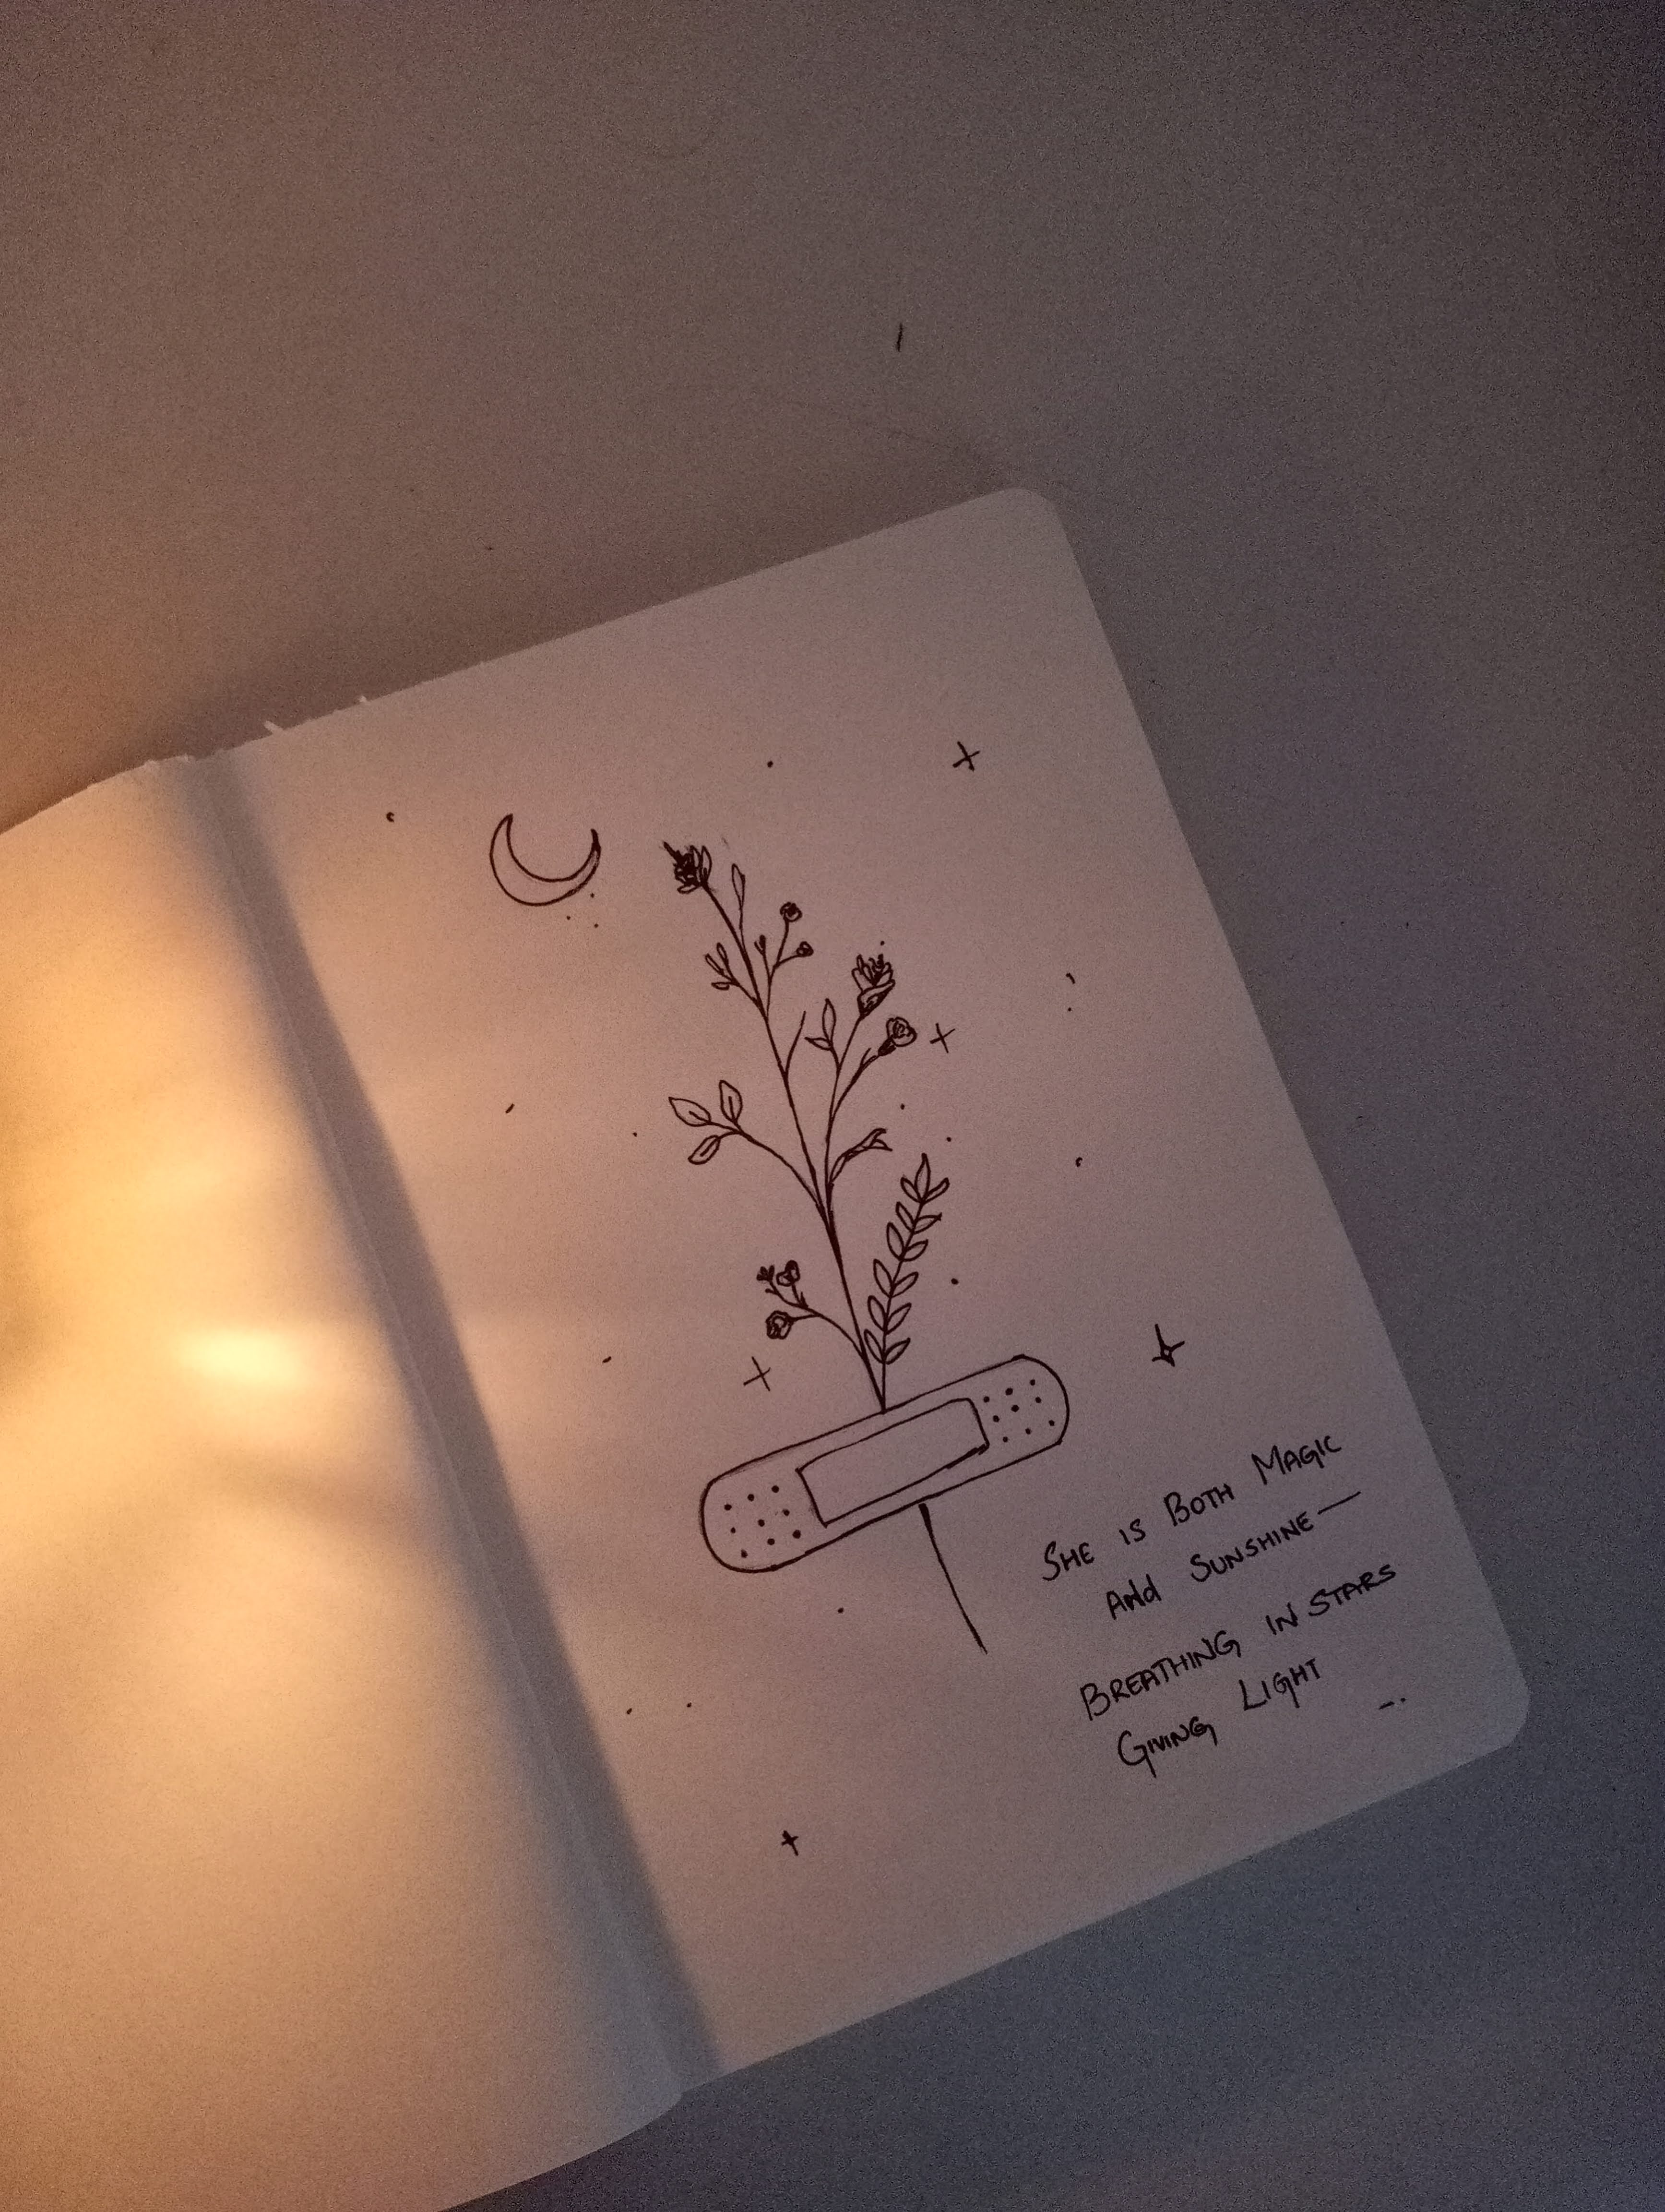 SHE IS BOTH MAGIC
And SUNSHINE—
BREATHING IN STARS
GIVING LIGHT